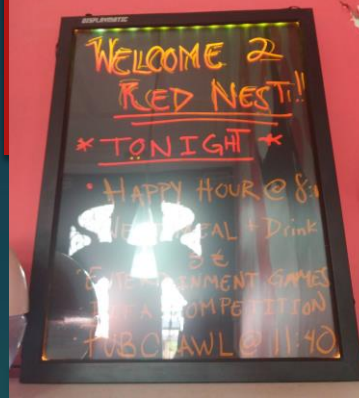 DISPLAYMATIC
WELCOME 2
RED NEST!!
* TONIGHT *
• HAPPY HOUR @ 8:
MEAL + Drink
3 €
ENTERTAINMENT GAMES
COMPETITION
PUBCRAWL @ 11:40